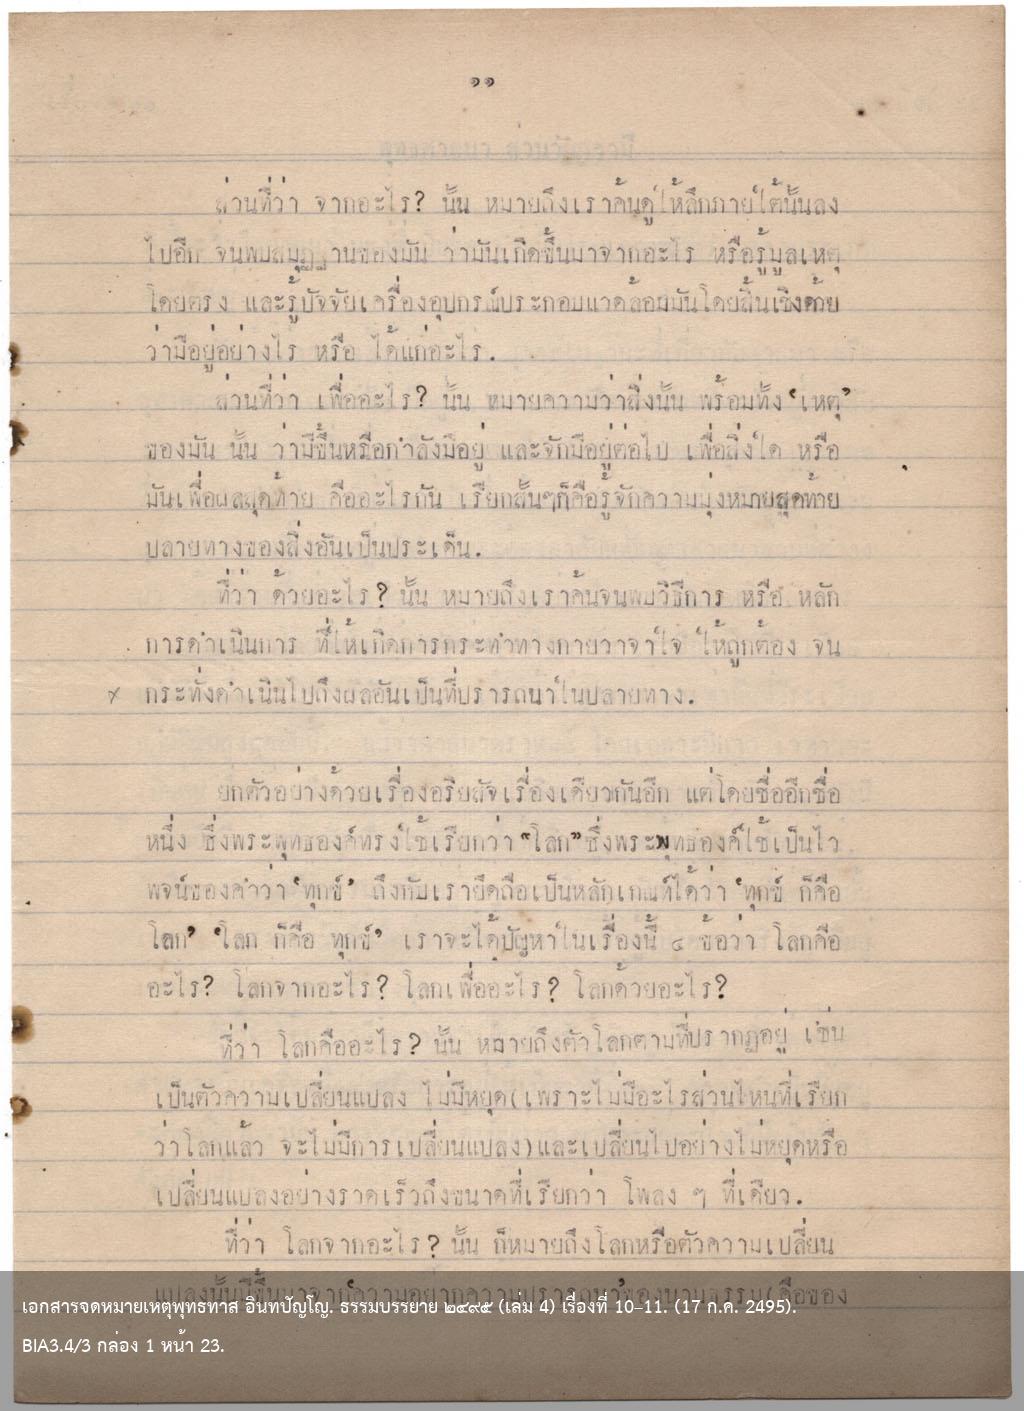 ๑๑
ส่วนที่ว่า จากอะไร? นั้น หมายถึงเราค้นดูให้ลึกภายใต้นั้นลง
ไปอีก จนพบสมุฏฐานของมัน ว่ามันเกิดขึ้นมาจากอะไร หรือรู้มูลเหตุ
โดยตรง และรู้ปัจจัยเครื่องอุปกรณ์ประกอบแวดล้อมมันโดยสิ้นเชิงด้วย
ว่ามีอยู่อย่างไร หรือ ได้แก่อะไร.
ส่วนที่ว่า เพื่ออะไร? นั้น หมายความว่าสิ่งนั้น พร้อมทั้ง 'เหตุ'
ของมัน นั้น ว่ามีขึ้นหรือกำลังมีอยู่ และจักมีอยู่ต่อไป เพื่อสิ่งใด หรือ
มันเพื่อผลสุดท้าย คืออะไรกัน เรียกสั้นๆก็คือรู้จักความมุ่งหมายสุดท้าย
ปลายทางของสิ่งอันเป็นประเด็น.
ที่ว่า ด้วยอะไร? นั้น หมายถึงเราค้นจนพบวิธีการ หรือ หลัก
การดำเนินการ ที่ให้เกิดการกระทำทางกายวาจาใจ ให้ถูกต้อง จน
× กระทั่งดำเนินไปถึงผลอันเป็นที่ปรารถนาในปลายทาง.
ยกตัวอย่างด้วยเรื่องอริยสัจเรื่องเดียวกันอีก แต่โดยชื่ออีกชื่อ
หนึ่ง ซึ่งพระพุทธองค์ทรงใช้เรียกว่า "โลก" ซึ่งพระพุทธองค์ใช้เป็นไว
พจน์ของคำว่า 'ทุกข์' ถึงกับเรายึดถือเป็นหลักเกณฑ์ได้ว่า 'ทุกข์ ก็คือ
โลก' 'โลก ก็คือ ทุกข์' เราจะได้ปัญหาในเรื่องนี้ ๔ ข้อว่า โลกคือ
อะไร? โลกจากอะไร? โลกเพื่ออะไร? โลกด้วยอะไร?
ที่ว่า โลกคืออะไร? นั้น หมายถึงตัวโลกตามที่ปรากฏอยู่ เช่น
เป็นตัวความเปลี่ยนแปลง ไม่มีหยุด(เพราะไม่มีอะไรส่วนไหนที่เรียก
ว่าโลกแล้ว จะไม่มีการเปลี่ยนแปลง)และเปลี่ยนไปอย่างไม่หยุดหรือ
เปลี่ยนแปลงอย่างรวดเร็วถึงขนาดที่เรียกว่า โพลง ๆ ทีเดียว.
ที่ว่า โลกจากอะไร? นั้น ก็หมายถึงโลกหรือตัวความเปลี่ยน
แปลงนั้นมีขึ้นมาจาก'ความอยากความปรารถนา'ของนามธรรม(คือของ
เอกสารจดหมายเหตุพุทธทาส อินทปัญโญ. ธรรมบรรยาย ๒๔๙๕ (เล่ม 4) เรื่องที่ 10–11. (17 ก.ค. 2495).
BIA3.4/3 กล่อง 1 หน้า 23.